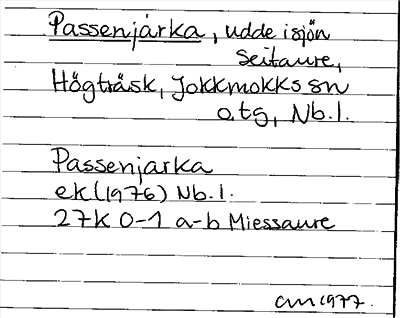 Passenjárka, udde i sjön
Seitaure,
Högträsk, Jokkmokks sn
o.tg, Nb.l.
Passenjárka
ek (1976) Nb.l.
27K 0-1 a-b Miessaure
CM 1977.